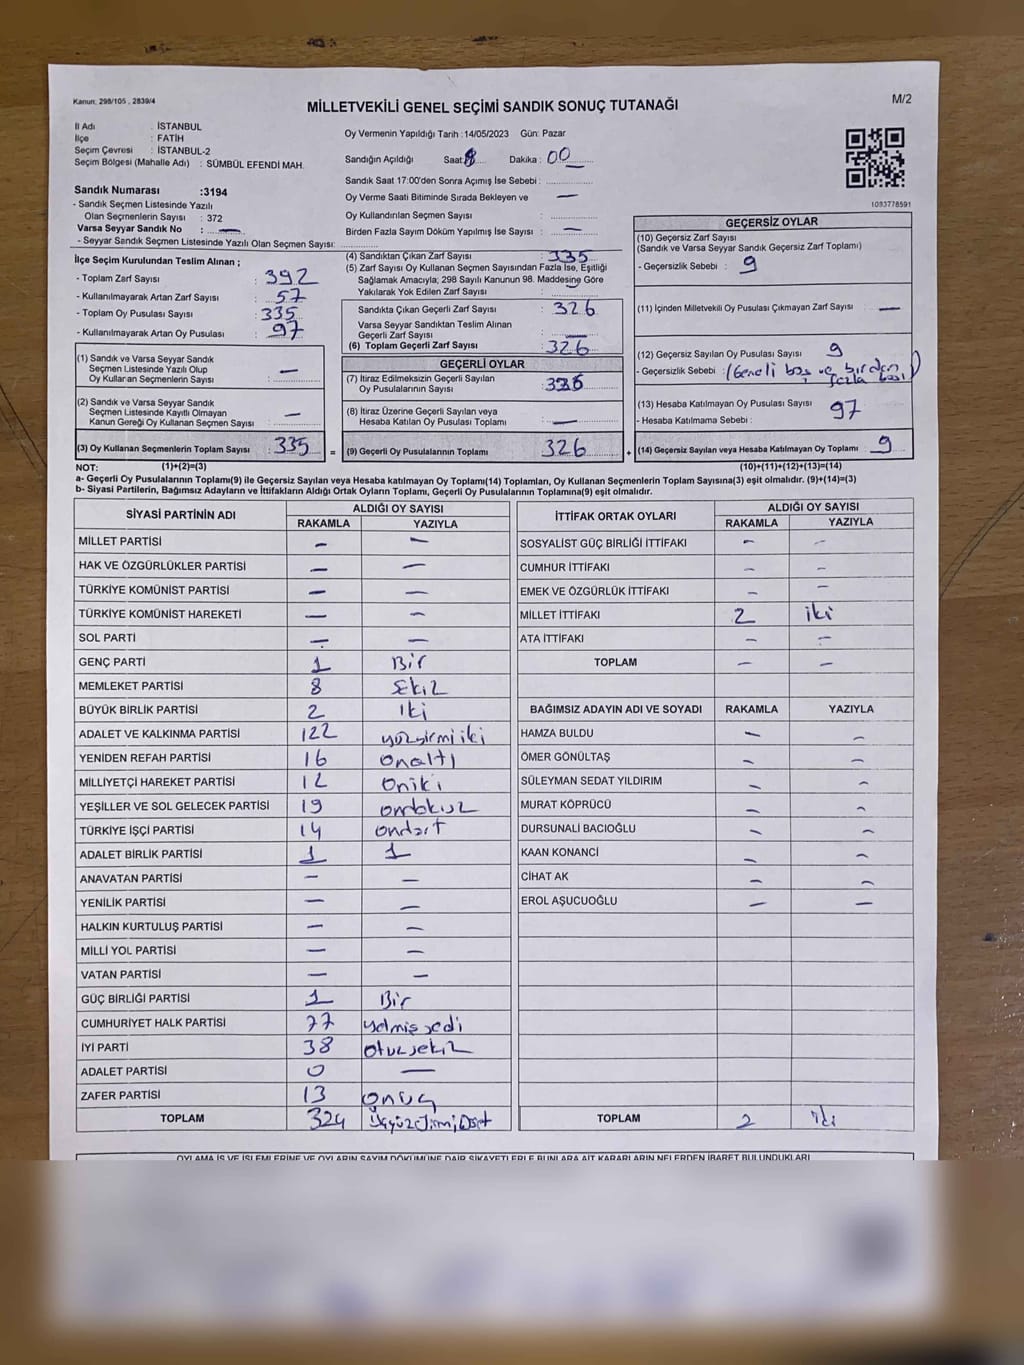 Kanun: 298/105 , 2839/4
M/2
MİLLETVEKİLİ GENEL SEÇİMİ SANDIK SONUÇ TUTANAĞI
İl Adı : İSTANBUL
İlçe : FATİH
Seçim Çevresi : İSTANBUL-2
Seçim Bölgesi (Mahalle Adı) : SÜMBÜL EFENDİ MAH.
Oy Vermenin Yapıldığı Tarih :14/05/2023 Gün: Pazar
Sandığın Açıldığı Saat: 8 Dakika : 00
Sandık Saat 17:00'den Sonra Açımış İse Sebebi :
Oy Verme Saati Bitiminde Sırada Bekleyen ve —
Oy Kullandırılan Seçmen Sayısı :
Birden Fazla Sayım Döküm Yapılmış İse Sayısı : —
1093778591
Sandık Numarası :3194
- Sandık Seçmen Listesinde Yazılı
Olan Seçmenlerin Sayısı : 372
Varsa Seyyar Sandık No : —
- Seyyar Sandık Seçmen Listesinde Yazılı Olan Seçmen Sayısı:
İlçe Seçim Kurulundan Teslim Alınan ;
- Toplam Zarf Sayısı : 392
- Kullanılmayarak Artan Zarf Sayısı : 57
- Toplam Oy Pusulası Sayısı : 335
- Kullanılmayarak Artan Oy Pusulası : 97
(1) Sandık ve Varsa Seyyar Sandık
Seçmen Listesinde Yazılı Olup
Oy Kullanan Seçmenlerin Sayısı : —
(2) Sandık ve Varsa Seyyar Sandık
Seçmen Listesinde Kayıtlı Olmayan
Kanun Gereği Oy Kullanan Seçmen Sayısı : —
(3) Oy Kullanan Seçmenlerin Toplam Sayısı : 335 =
(4) Sandıktan Çıkan Zarf Sayısı : 335
(5) Zarf Sayısı Oy Kullanan Seçmen Sayısından Fazla İse, Eşitliği
Sağlamak Amacıyla; 298 Sayılı Kanunun 98. Maddesine Göre
Yakılarak Yok Edilen Zarf Sayısı :
Sandıkta Çıkan Geçerli Zarf Sayısı : 326
Varsa Seyyar Sandıktan Teslim Alınan
Geçerli Zarf Sayısı :
(6) Toplam Geçerli Zarf Sayısı : 326
GEÇERLİ OYLAR
(7) İtiraz Edilmeksizin Geçerli Sayılan
Oy Pusulalarının Sayısı : 326
(8) İtiraz Üzerine Geçerli Sayılan veya
Hesaba Katılan Oy Pusulası Toplamı : —
(9) Geçerli Oy Pusulalarının Toplamı : 326 +
GEÇERSİZ OYLAR
(10) Geçersiz Zarf Sayısı
(Sandık ve Varsa Seyyar Sandık Geçersiz Zarf Toplamı)
- Geçersizlik Sebebi : 9
(11) İçinden Milletvekili Oy Pusulası Çıkmayan Zarf Sayısı : —
(12) Geçersiz Sayılan Oy Pusulası Sayısı : 9
- Geçersizlik Sebebi : boş ve birden fazla
(13) Hesaba Katılmayan Oy Pusulası Sayısı : 97
- Hesaba Katılmama Sebebi :
(14) Geçersiz Sayılan veya Hesaba Katılmayan Oy Toplamı : 9
NOT: (1)+(2)=(3) (10)+(11)+(12)+(13)=(14)
a- Geçerli Oy Pusulalarının Toplamı(9) ile Geçersiz Sayılan veya Hesaba katılmayan Oy Toplamı(14) Toplamları, Oy Kullanan Seçmenlerin Toplam Sayısına(3) eşit olmalıdır. (9)+(14)=(3)
b- Siyasi Partilerin, Bağımsız Adayların ve İttifakların Aldığı Ortak Oyların Toplamı, Geçerli Oy Pusulalarının Toplamına(9) eşit olmalıdır.
SİYASİ PARTİNİN ADI ALDIĞI OY SAYISI
RAKAMLA YAZIYLA
MİLLET PARTİSİ — —
HAK VE ÖZGÜRLÜKLER PARTİSİ — —
TÜRKİYE KOMÜNİST PARTİSİ — —
TÜRKİYE KOMÜNİST HAREKETİ — —
SOL PARTİ — —
GENÇ PARTİ 1 Bir
MEMLEKET PARTİSİ 8 sekiz
BÜYÜK BİRLİK PARTİSİ 2 iki
ADALET VE KALKINMA PARTİSİ 122 yüzyirmi iki
YENİDEN REFAH PARTİSİ 16 onaltı
MİLLİYETÇİ HAREKET PARTİSİ 12 oniki
YEŞİLLER VE SOL GELECEK PARTİSİ 19 ondokuz
TÜRKİYE İŞÇİ PARTİSİ 14 ondört
ADALET BİRLİK PARTİSİ 1 1
ANAVATAN PARTİSİ — —
YENİLİK PARTİSİ — —
HALKIN KURTULUŞ PARTİSİ — —
MİLLİ YOL PARTİSİ — —
VATAN PARTİSİ — —
GÜÇ BİRLİĞİ PARTİSİ 1 Bir
CUMHURİYET HALK PARTİSİ 77 yetmiş yedi
İYİ PARTİ 38 otuzsekiz
ADALET PARTİSİ 0 —
ZAFER PARTİSİ 13 onüç
TOPLAM 324 üçyüzyirmidört
İTTİFAK ORTAK OYLARI ALDIĞI OY SAYISI
RAKAMLA YAZIYLA
SOSYALİST GÜÇ BİRLİĞİ İTTİFAKI — —
CUMHUR İTTİFAKI — —
EMEK VE ÖZGÜRLÜK İTTİFAKI — —
MİLLET İTTİFAKI 2 iki
ATA İTTİFAKI — —
TOPLAM — —
BAĞIMSIZ ADAYIN ADI VE SOYADI RAKAMLA YAZIYLA
HAMZA BULDU — —
ÖMER GÖNÜLTAŞ — —
SÜLEYMAN SEDAT YILDIRIM — —
MURAT KÖPRÜCÜ — —
DURSUNALİ BACIOĞLU — —
KAAN KONANCİ — —
CİHAT AK — —
EROL AŞUCUOĞLU — —
TOPLAM 2 iki
OYLAMA İŞ VE İŞLEMLERİNE VE OYLARIN SAYIM DÖKÜMÜNE DAİR ŞİKAYETLERLE BUNLARA AİT KARARLARIN NELERDEN İBARET BULUNDUKLARI